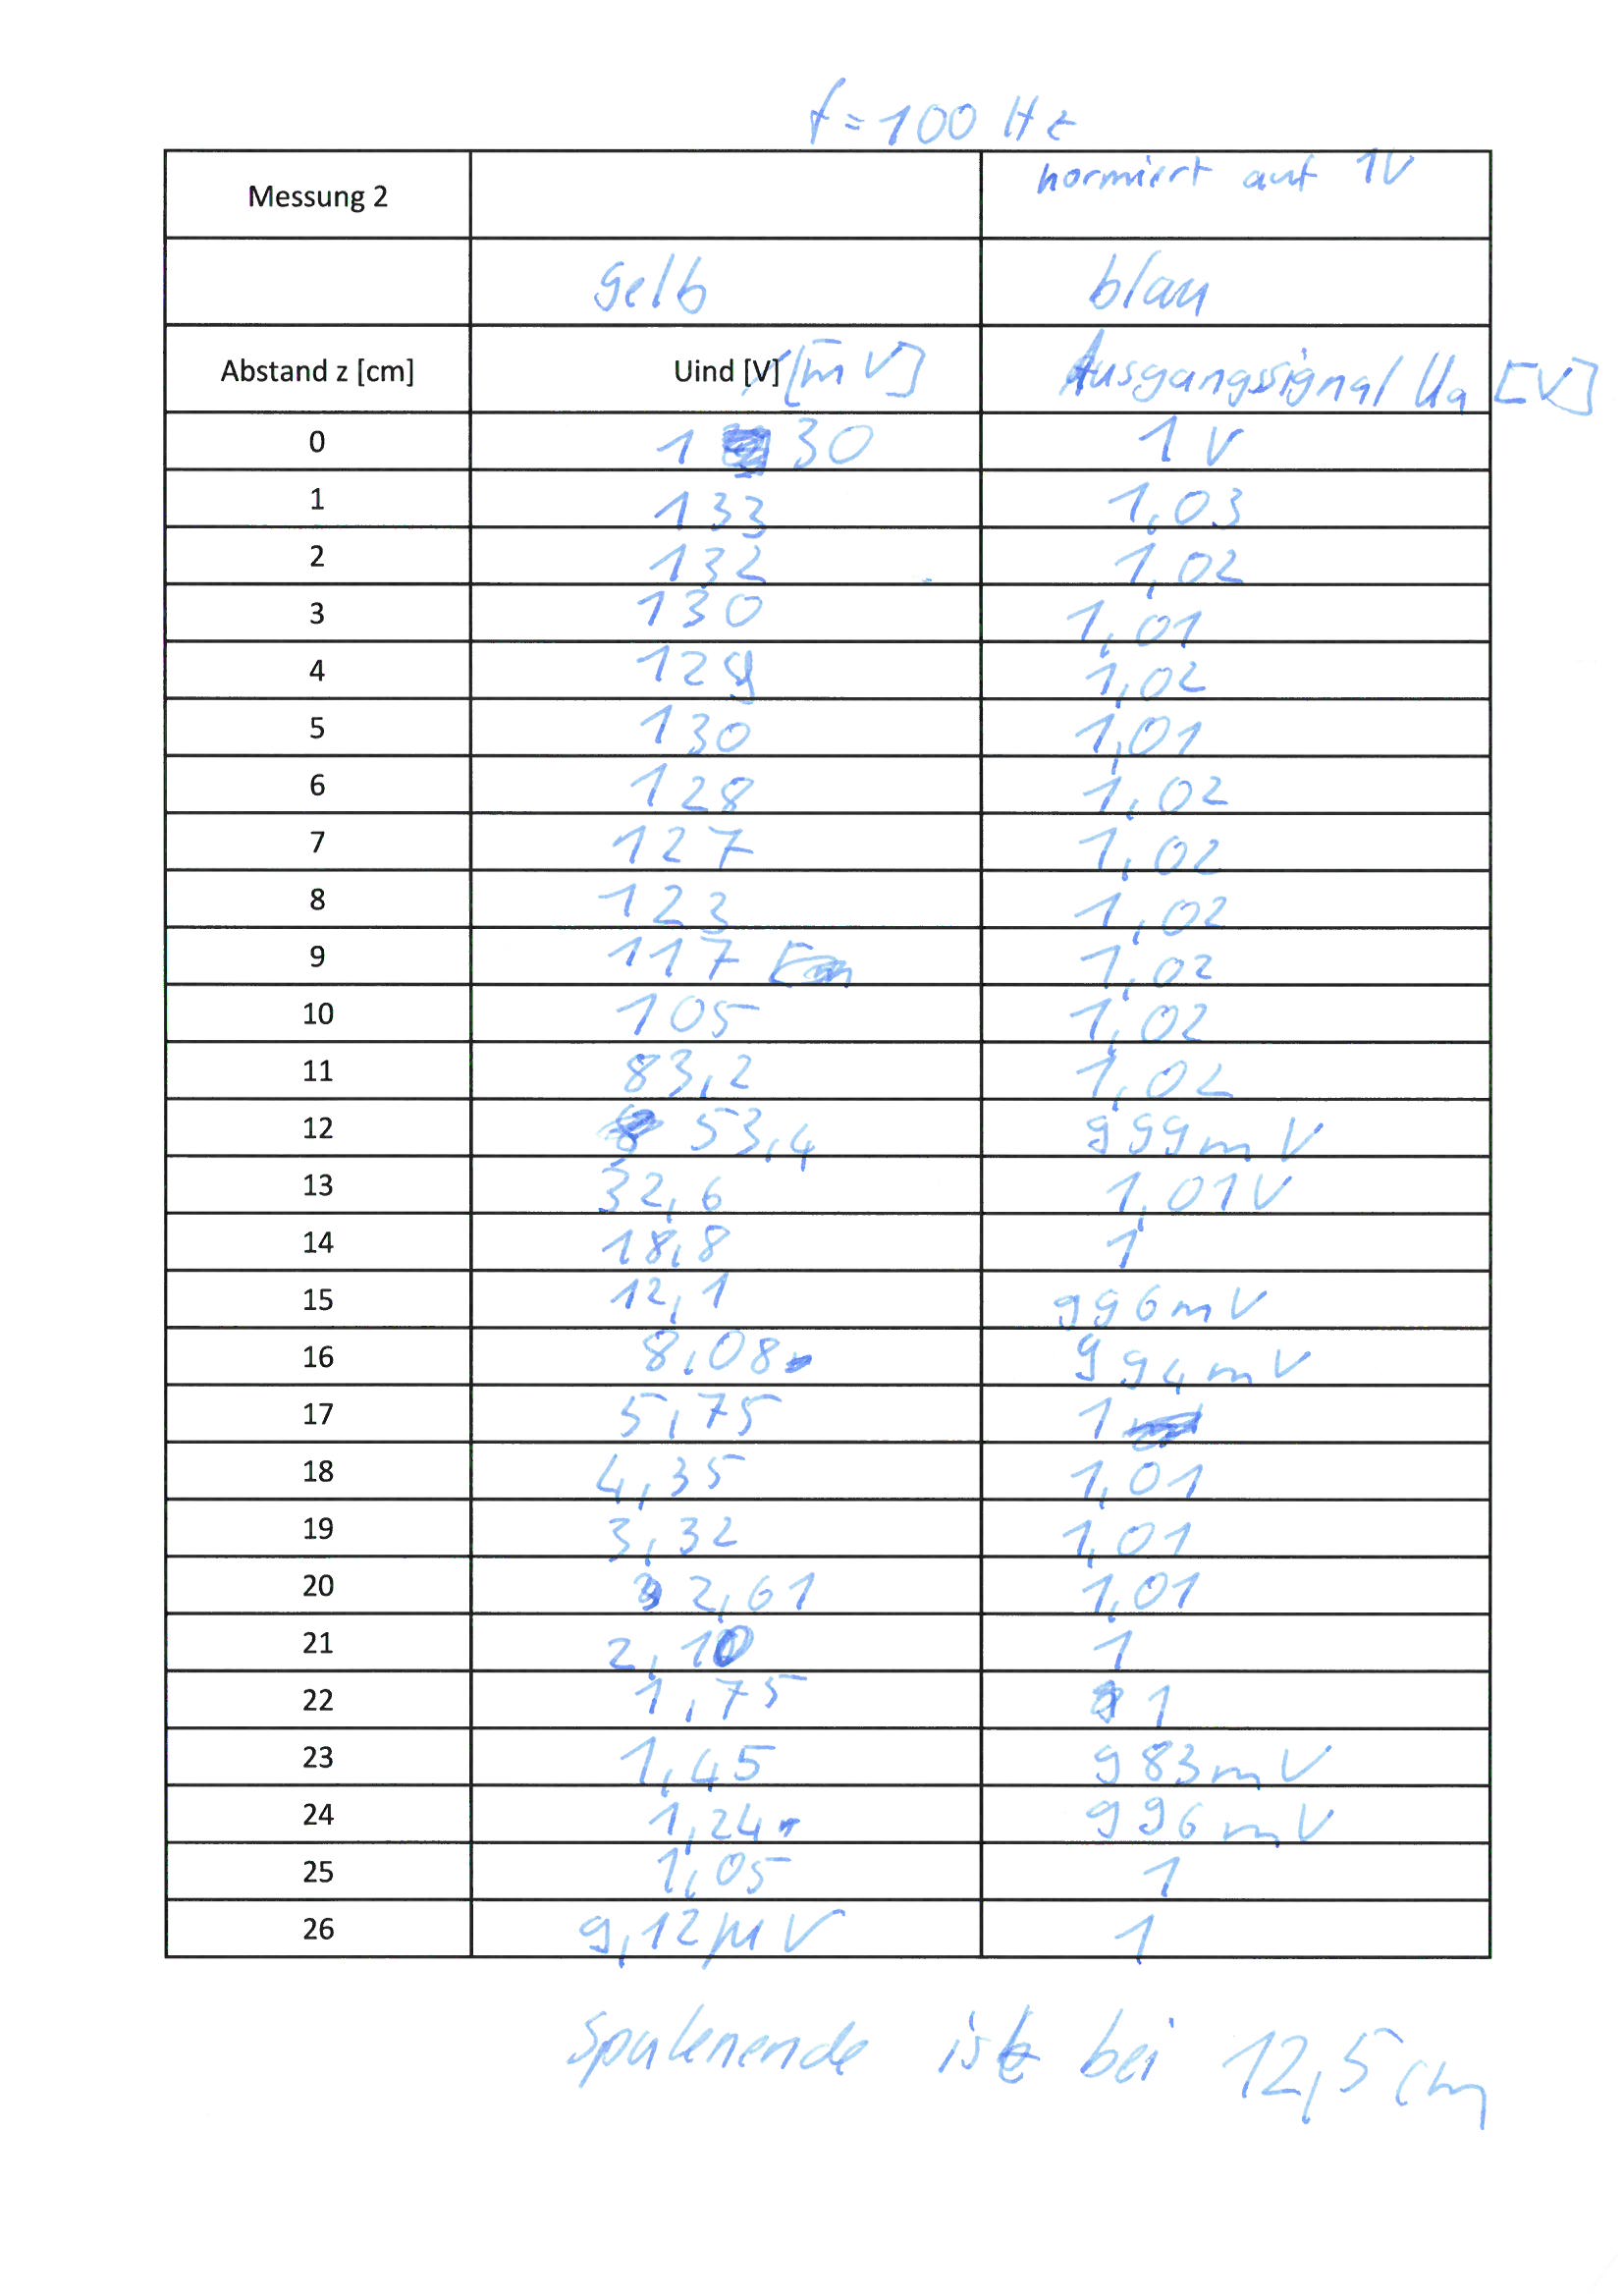 f = 100 Hz
Messung 2 normiert auf 1V
gelb blau
Abstand z [cm] Uind [V] [mV] Ausgangssignal Ua [V]
0 1 30 1 V
1 133 1,03
2 132 1,02
3 130 1,01
4 129 1,02
5 130 1,01
6 128 1,02
7 127 1,02
8 123 1,02
9 117 1,02
10 105 1,02
11 83,2 1,02
12 53,4 999mV
13 32,6 1,01V
14 18,8 1
15 12,1 996mV
16 8,08 994mV
17 5,75 1
18 4,35 1,01
19 3,32 1,01
20 2,61 1,01
21 2,10 1
22 1,75 1
23 1,45 983mV
24 1,24 996mV
25 1,05 1
26 9,12µV 1
Spulenende ist bei 12,5cm